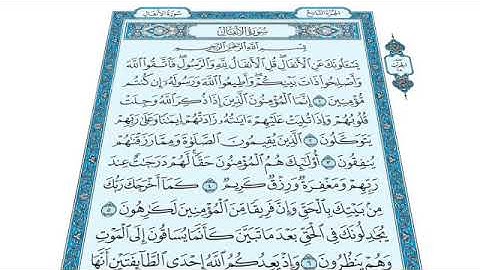 سُورَةُ الأَنفَالِ
الجُزْءُ التَّاسِعُ
سُورَةُ الأَنفَالِ
بِسْمِ اللَّهِ الرَّحْمَٰنِ الرَّحِيمِ
يَسْـَٔلُونَكَ عَنِ ٱلْأَنفَالِ قُلِ ٱلْأَنفَالُ لِلَّهِ وَٱلرَّسُولِ فَٱتَّقُوا۟ ٱللَّهَ
وَأَصْلِحُوا۟ ذَاتَ بَيْنِكُمْ وَأَطِيعُوا۟ ٱللَّهَ وَرَسُولَهُۥٓ إِن كُنتُم
مُّؤْمِنِينَ ١ إِنَّمَا ٱلْمُؤْمِنُونَ ٱلَّذِينَ إِذَا ذُكِرَ ٱللَّهُ وَجِلَتْ
قُلُوبُهُمْ وَإِذَا تُلِيَتْ عَلَيْهِمْ ءَايَٰتُهُۥ زَادَتْهُمْ إِيمَٰنًا وَعَلَىٰ رَبِّهِمْ
يَتَوَكَّلُونَ ٢ ٱلَّذِينَ يُقِيمُونَ ٱلصَّلَوٰةَ وَمِمَّا رَزَقْنَٰهُمْ
يُنفِقُونَ ٣ أُو۟لَٰٓئِكَ هُمُ ٱلْمُؤْمِنُونَ حَقًّا لَّهُمْ دَرَجَٰتٌ عِندَ
رَبِّهِمْ وَمَغْفِرَةٌ وَرِزْقٌ كَرِيمٌ ٤ كَمَآ أَخْرَجَكَ رَبُّكَ
مِنۢ بَيْتِكَ بِٱلْحَقِّ وَإِنَّ فَرِيقًا مِّنَ ٱلْمُؤْمِنِينَ لَكَٰرِهُونَ ٥
يُجَٰدِلُونَكَ فِى ٱلْحَقِّ بَعْدَ مَا تَبَيَّنَ كَأَنَّمَا يُسَاقُونَ إِلَى ٱلْمَوْتِ
وَهُمْ يَنظُرُونَ ٦ وَإِذْ يَعِدُكُمُ ٱللَّهُ إِحْدَى ٱلطَّآئِفَتَيْنِ أَنَّهَا